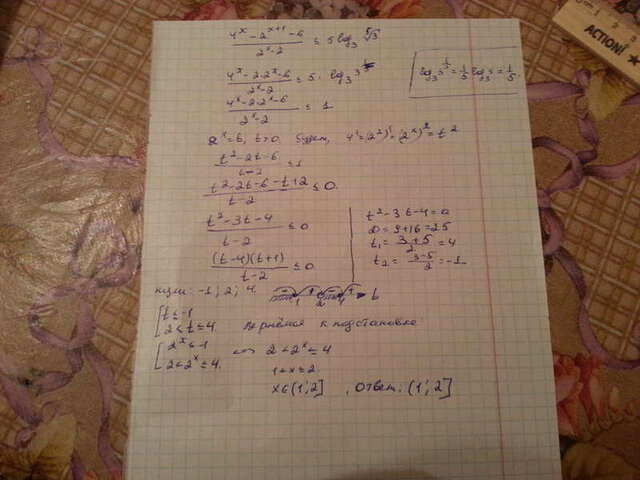 ACTION!
(4^x - 2^(x+1) - 6)/(2^x - 2) ≤ 5 log_3 ⁵√3
(4^x - 2·2^x - 6)/(2^x - 2) ≤ 5 · log_3 3^(1/5)
log_3 3^(1/5) = 1/5 log_3 3 = 1/5.
(4^x - 2·2^x - 6)/(2^x - 2) ≤ 1
2^x = t, t>0. 4^x = (2^2)^x = (2^x)^2 = t^2
(t^2 - 2t - 6)/(t-2) ≤ 1
(t^2 - 2t - 6 - t + 2)/(t-2) ≤ 0.
(t^2 - 3t - 4)/(t-2) ≤ 0
(t-4)(t+1)/(t-2) ≤ 0
t^2 - 3t - 4 = 0
D = 9+16 = 25
t_1 = (3+5)/2 = 4
t_2 = (3-5)/2 = -1.
нули: -1; 2; 4.
[ t ≤ -1
2 < t ≤ 4. Вернёмся к подстановке:
[ 2^x ≤ -1 <=> 2 < 2^x ≤ 4
2 < 2^x ≤ 4.
1 < x ≤ 2
x ∈ (1; 2] . Ответ: (1; 2]